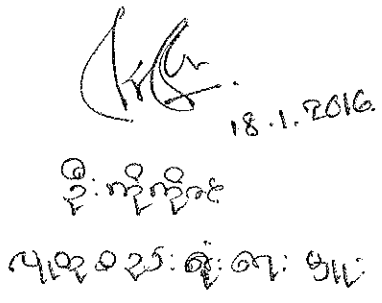 18.1.2016.
ဦးကိုကိုလင်
လူထုစည်းရုံးရေးမှူး